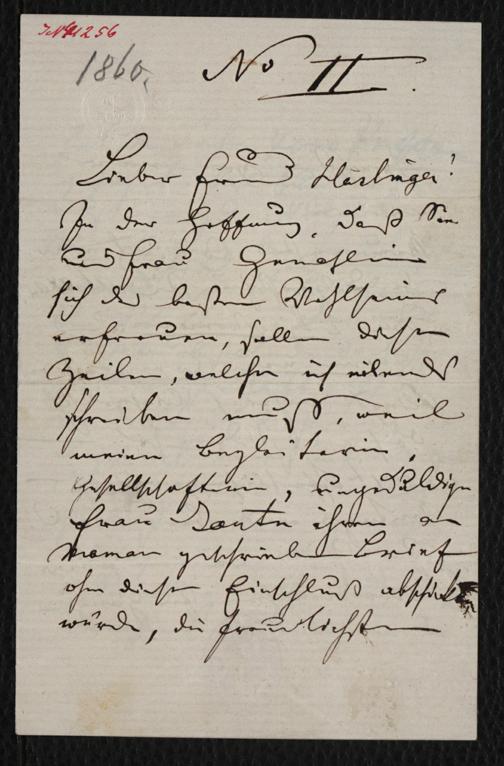 INH 41256
1860.
No II.
Lieber Freund Haslinger!
In der Hoffnung, daß Sie
und Frau Gemahlin
sich des besten Wohlseins
erfreuen, sollen diese
Zeilen, welche ich eilends
schreiben muß, weil
meine Begleiterin,
Gesellschafterin, ungeduldige
Frau Tante ihren an
Maman geschriebenen Brief
ohne diesen Einschluß abschicken
würde, die freundlichsten